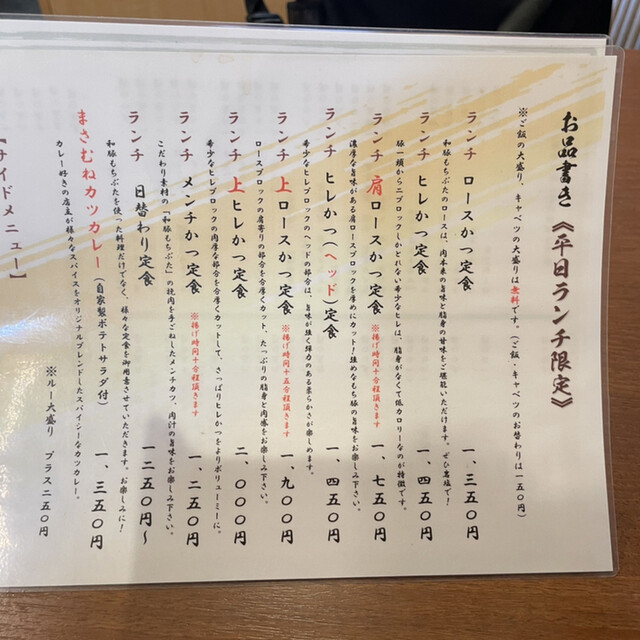 お品書き《平日ランチ限定》
※ご飯の大盛り、キャベツの大盛りは無料です。(ご飯・キャベツのお替わりは一五〇円)
ランチ ロースかつ定食 一、三五〇円
和豚もちぶたのロースは、肉本来の旨味と脂身の甘味をご堪能いただけます。ぜひ塩で!
ランチ ヒレかつ定食 一、四五〇円
豚一頭から二ブロックしかとれない希少なヒレは、脂身がなくて低カロリーなのが特徴です。
ランチ 肩ロースかつ定食 ※揚げ時間十分程頂きます 一、七五〇円
濃厚な旨味がある肩ロースブロックを厚めにカット!強めなもち豚の旨味をお楽しみ下さい。
ランチ ヒレかつ(ヘッド)定食 一、四五〇円
希少なヒレブロックのヘッドの部分は、旨味が強く弾力のある柔らかさが楽しめます。
ランチ 上ロースかつ定食 ※揚げ時間十五分程頂きます 一、九〇〇円
ロースブロックの肩寄りの部分を分厚くカット、たっぷりの脂身と肉感をお楽しみ下さい。
ランチ 上ヒレかつ定食 二、〇〇〇円
希少なヒレブロックの肉厚な部分を分厚くカットして、さっぱりヒレかつをよりボリューミーに。
ランチ メンチかつ定食 ※揚げ時間十分程頂きます 一、二五〇円
こだわり素材の「和豚もちぶた」の挽肉を手ごねしたメンチカツ。肉汁の旨味をお楽しみ下さい。
ランチ 日替わり定食 一二五〇円〜
和豚もちぶたを使った料理だけでなく、様々な定食を御用意させていただきます。お楽しみに!
まさむねカツカレー(自家製ポテトサラダ付) 一、三五〇円
カレー好きの店主が様々なスパイスをオリジナルブレンドしたスパイシーなカツカレー。
※ルー大盛り プラス二五〇円
【サイドメニュー】